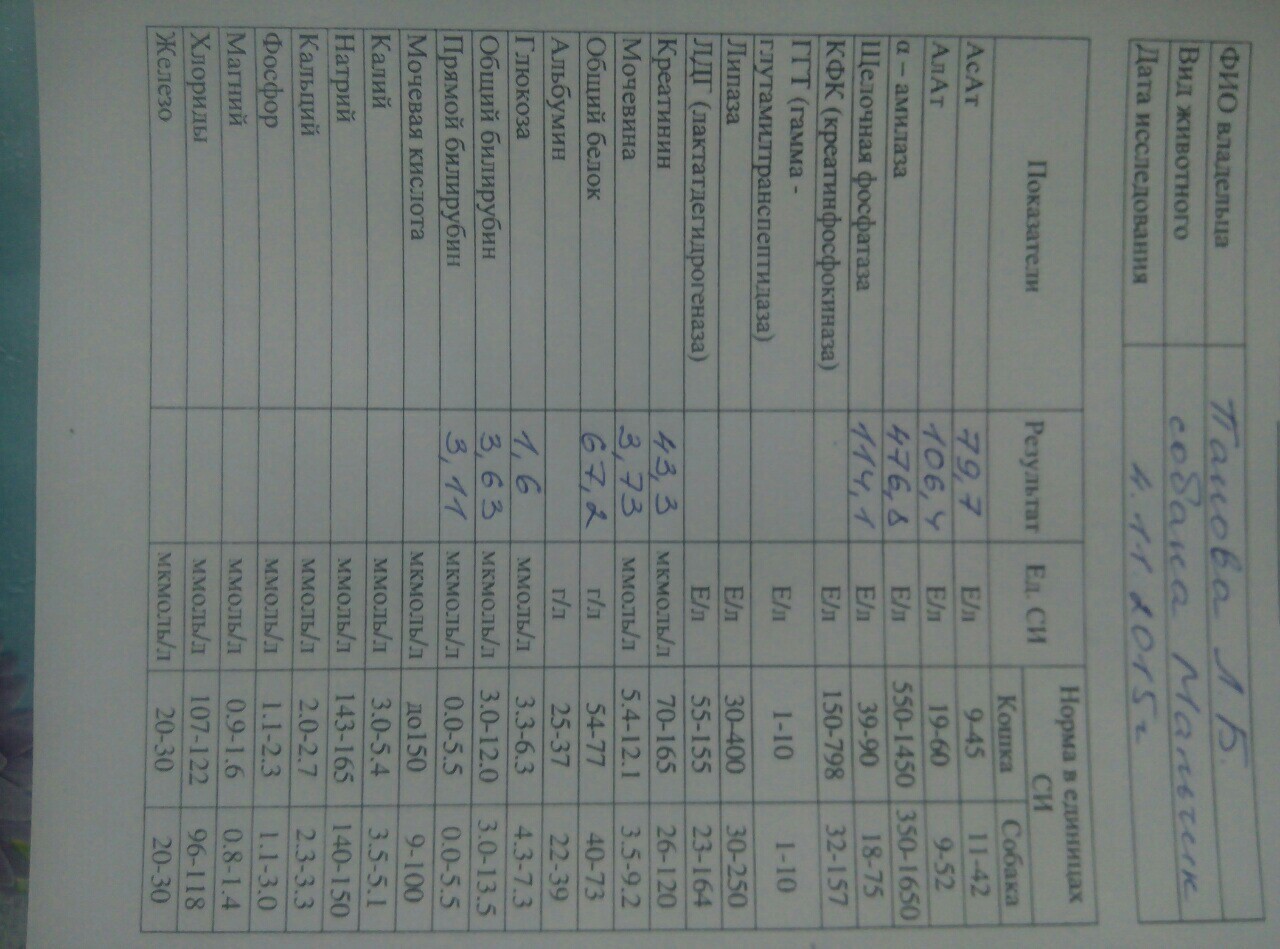 ФИО владельца Панова Л.Б.
Вид животного собака Мальчик
Дата исследования 4.11.2015г
Показатели Результат Ед. СИ Норма в единицах СИ
Кошка Собака
АсАт 79,7 Е/л 9-45 11-42
АлАт 106,4 Е/л 19-60 9-52
α – амилаза 476,8 Е/л 550-1450 350-1650
Щелочная фосфатаза 114,1 Е/л 39-90 18-75
КФК (креатинфосфокиназа) Е/л 150-798 32-157
ГГТ (гамма -
глутамилтранспептидаза) Е/л 1-10 1-10
Липаза Е/л 30-400 30-250
ЛДГ (лактатдегидрогеназа) Е/л 55-155 23-164
Креатинин 43,3 мкмоль/л 70-165 26-120
Мочевина 3,73 ммоль/л 5.4-12.1 3.5-9.2
Общий белок 67,2 г/л 54-77 40-73
Альбумин г/л 25-37 22-39
Глюкоза 1,6 ммоль/л 3.3-6.3 4.3-7.3
Общий билирубин 3,63 мкмоль/л 3.0-12.0 3.0-13.5
Прямой билирубин 3,11 мкмоль/л 0.0-5.5 0.0-5.5
Мочевая кислота мкмоль/л до150 9-100
Калий ммоль/л 3.0-5.4 3.5-5.1
Натрий ммоль/л 143-165 140-150
Кальций ммоль/л 2.0-2.7 2.3-3.3
Фосфор ммоль/л 1.1-2.3 1.1-3.0
Магний ммоль/л 0.9-1.6 0.8-1.4
Хлориды ммоль/л 107-122 96-118
Железо мкмоль/л 20-30 20-30